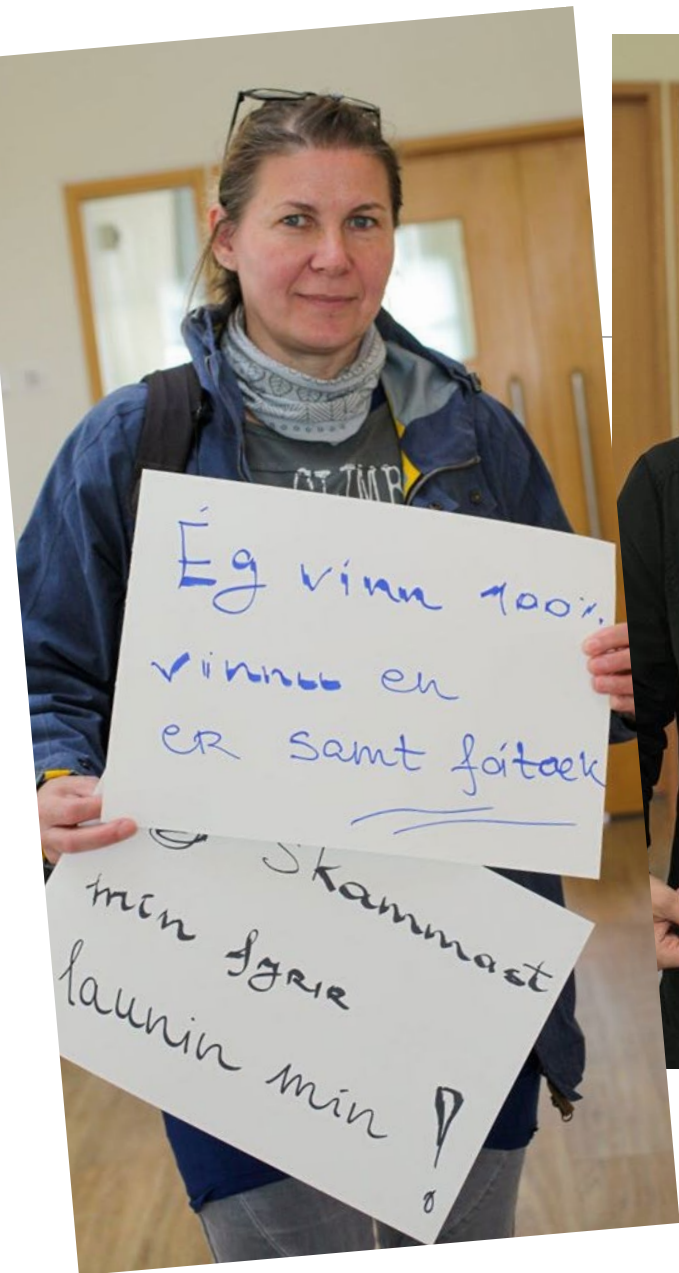 CLIMB
Ég vinn 100%
vinnu en
er samt fátæk
Skammast
mín fyrir
launin mín!